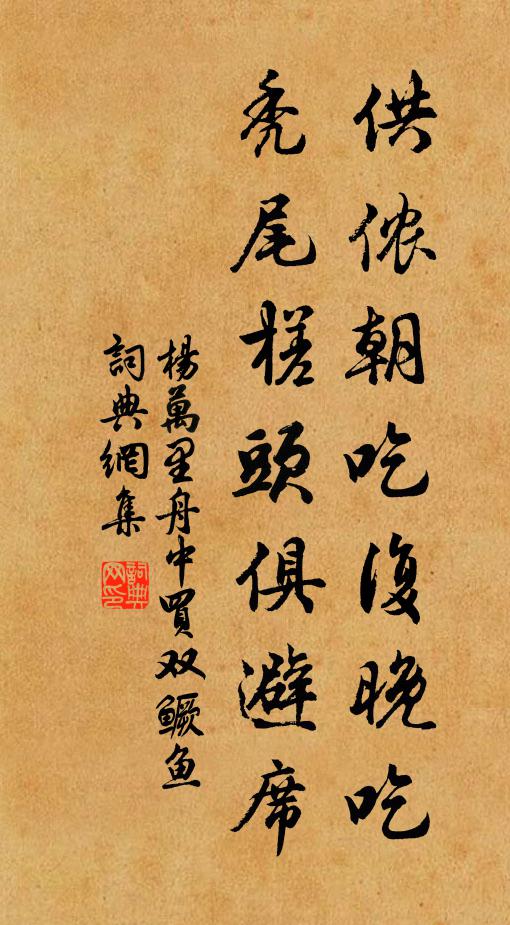 供侬朝吃復晚吃
秃尾槎頭俱避席
楊萬里舟中買双鳜鱼
詞典網集
詞典网印